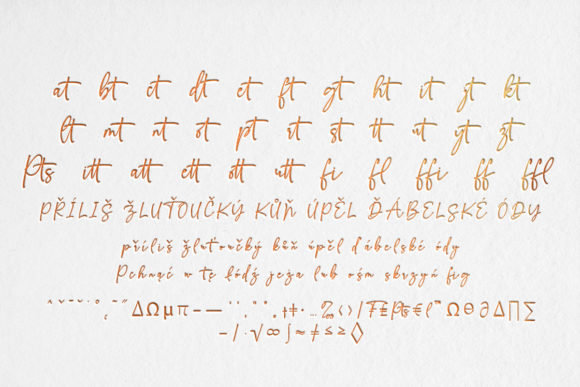 at bt ct dt et ft gt ht it jt kt
lt mt nt ot pt rt st tt ut yt zt
Pts itt att ett ott utt fi fl ffi ff ffl
PŘÍLIŠ ŽLUŤOUČKÝ KŮŇ ÚPĚL ĎÁBELSKÉ ÓDY
příliš žluťoučký kůň úpěl ďábelské ódy
Pchnąć w tę łódź jeża lub ośm skrzyń fig
ΔΩμπ–—‘’‚“”„†‡•…‰‹›/₣₤₧€ℓ™Ωθ∂Δ∏∑
−/·√∞∫≈≠≤≥◊